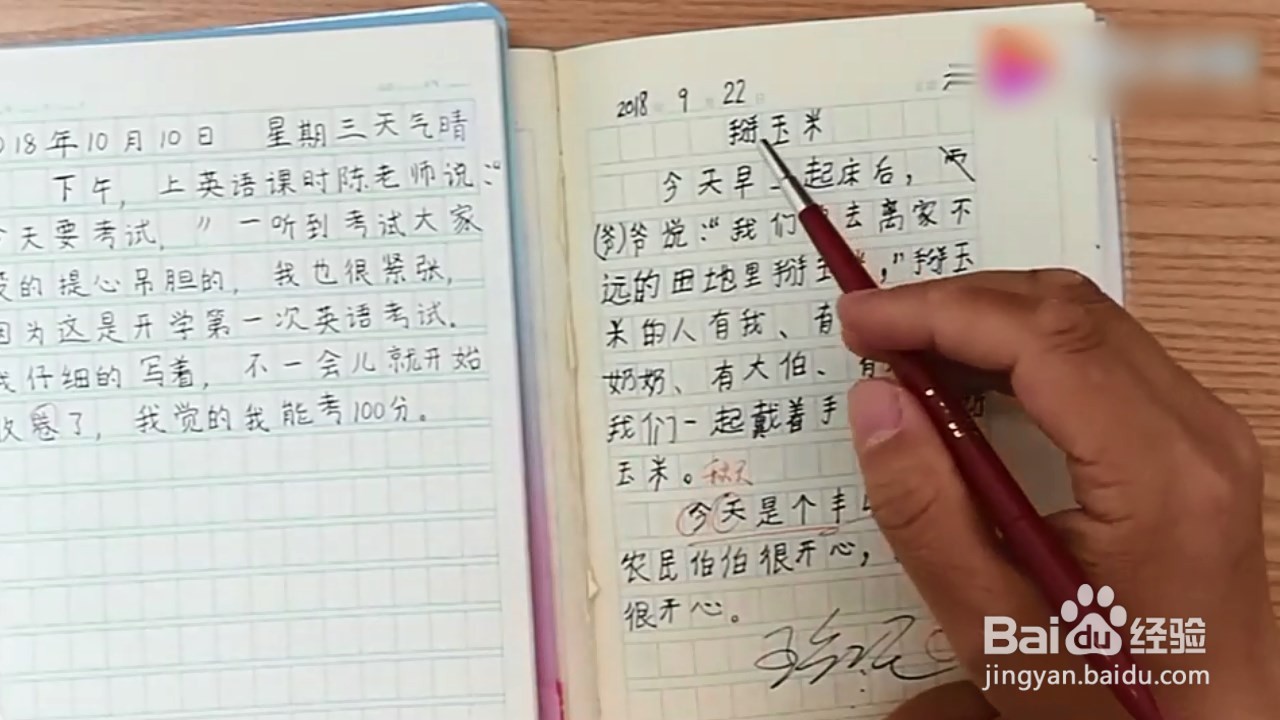 018年10月10日 星期三天气晴
下午，上英语课时陈老师说：“
今天要考试，”一听到考试大家
的提心吊胆的，我也很紧张，
因为这是开学第一次英语考试。
我仔细的写着，不一会儿就开始
收卷了，我觉的我能考100分。
2018 9 22
掰玉米
今天早上起床后，
(爷)爷说：“我们 去离家不
远的田地里掰玉米，”掰玉
米的人有我、有
奶奶、有大伯、有
我们一起戴着手
玉米。秋天
今天是个丰
农民伯伯很开心，
很开心。
Baidu 经验
jingyan.baidu.com